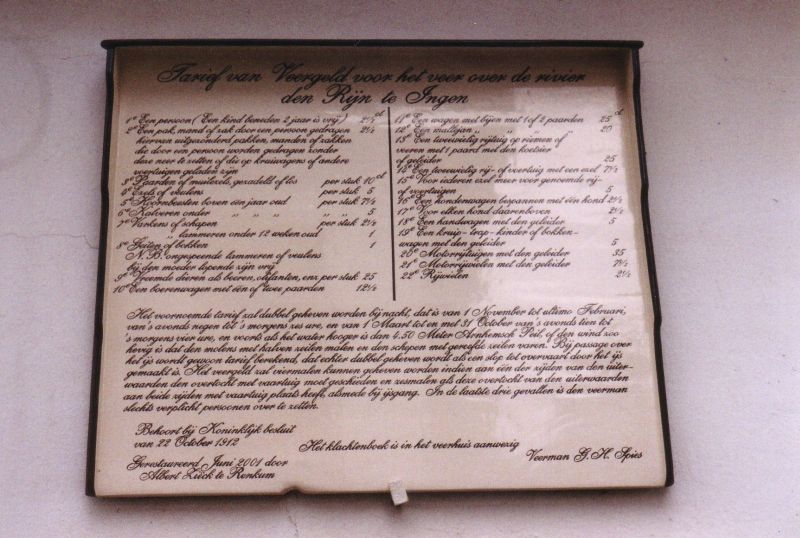 Tarief van Veergeld voor het veer over de rivier
den Rijn te Ingen
1e Een persoon (Een kind beneden 2 jaar is vrij) 2½ ct
2e Een pak, mand of zak door een persoon gedragen 2½
hiervan uitgezonderd pakken, manden of zakken
die door een persoon worden gedragen zonder
deze neer te zetten of die op kruiwagens of andere
voertuigen geladen zijn
3e Paarden of muilezels, gezadeld of los per stuk 10 ct
4e Ezels of veulens per stuk 5
5e Hoornbeesten boven één jaar oud per stuk 7½
6e Kalveren onder " " " " " 5
7e Varkens of schapen per stuk 2½
" lammeren onder 12 weken oud 1
8e Geiten of bokken 1
N.B. ongespeende lammeren of veulens
bij den moeder lopende zijn vrij
9e Vreemde dieren als beeren, olifanten, enz. per stuk 25
10e Een boerenwagen met één of twee paarden 12½
11e Een wagen met bijen met 1 of 2 paarden 25 ct
12e Een mallejan " " " " 20
13e Een tweewielig rijtuig op riemen of
veeren met 1 paard met den koetsier
of geleider 25
14e Een tweewielig rij- of voertuig met een ezel 7½
15e Voor iederen ezel meer voor genoemde rij-
of voertuigen 5
16e Een hondenwagen bespannen met één hond 2½
17e Voor elken hond daarenboven 2½
18e Een handwagen met den geleider 5
19e Een kruip- trap- kinder of bokken-
wagen met den geleider 5
20e Motorrijtuigen met den geleider 35
21e Motorrijwielen met den geleider 7½
22e Rijwielen 2½
Het voornoemde tarief zal dubbel geheven worden bij nacht, dat is van 1 November tot ultimo Februari,
van 's avonds negen tot 's morgens zes ure, en van 1 Maart tot en met 31 October van 's avonds tien tot
's morgens vier ure, en voorts als het water hooger is dan 6.50 Meter Arnhemsch Peil, of den wind zoo
hevig is dat den molens met halven zeilen malen en den schepen met gereefde zeilen varen. Bij passage over
het ijs wordt gewoon tarief berekend, dat echter dubbel geheven wordt als een slop tot overvaart door het ijs
gemaakt is. Het veergeld zal viermalen kunnen geheven worden indien aan één der zijden van den uiter-
waarden den overtocht met vaartuig moet geschieden en zesmalen als deze overtocht van den uiterwaarden
aan beide zijden met vaartuig plaats heeft, alsmede bij ijsgang. In de laatste drie gevallen is den veerman
slechts verplicht personen over te zetten.
Behoort bij Koninklijk besluit
van 22 October 1912
Het klachtenboek is in het veerhuis aanwezig
Veerman G. H. Spies
Gerestaureerd Juni 2001 door
Albert Zieck te Renkum